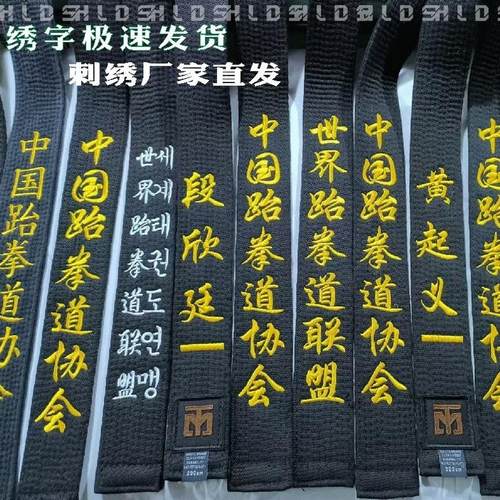 绣字极速发货
刺绣厂家直发
中国跆拳道协会
中国跆拳道协会
世界跆拳道联盟
세계태권도연맹
段欣廷
中国跆拳道协会
世界跆拳道联盟
中国跆拳道协会
黄起义